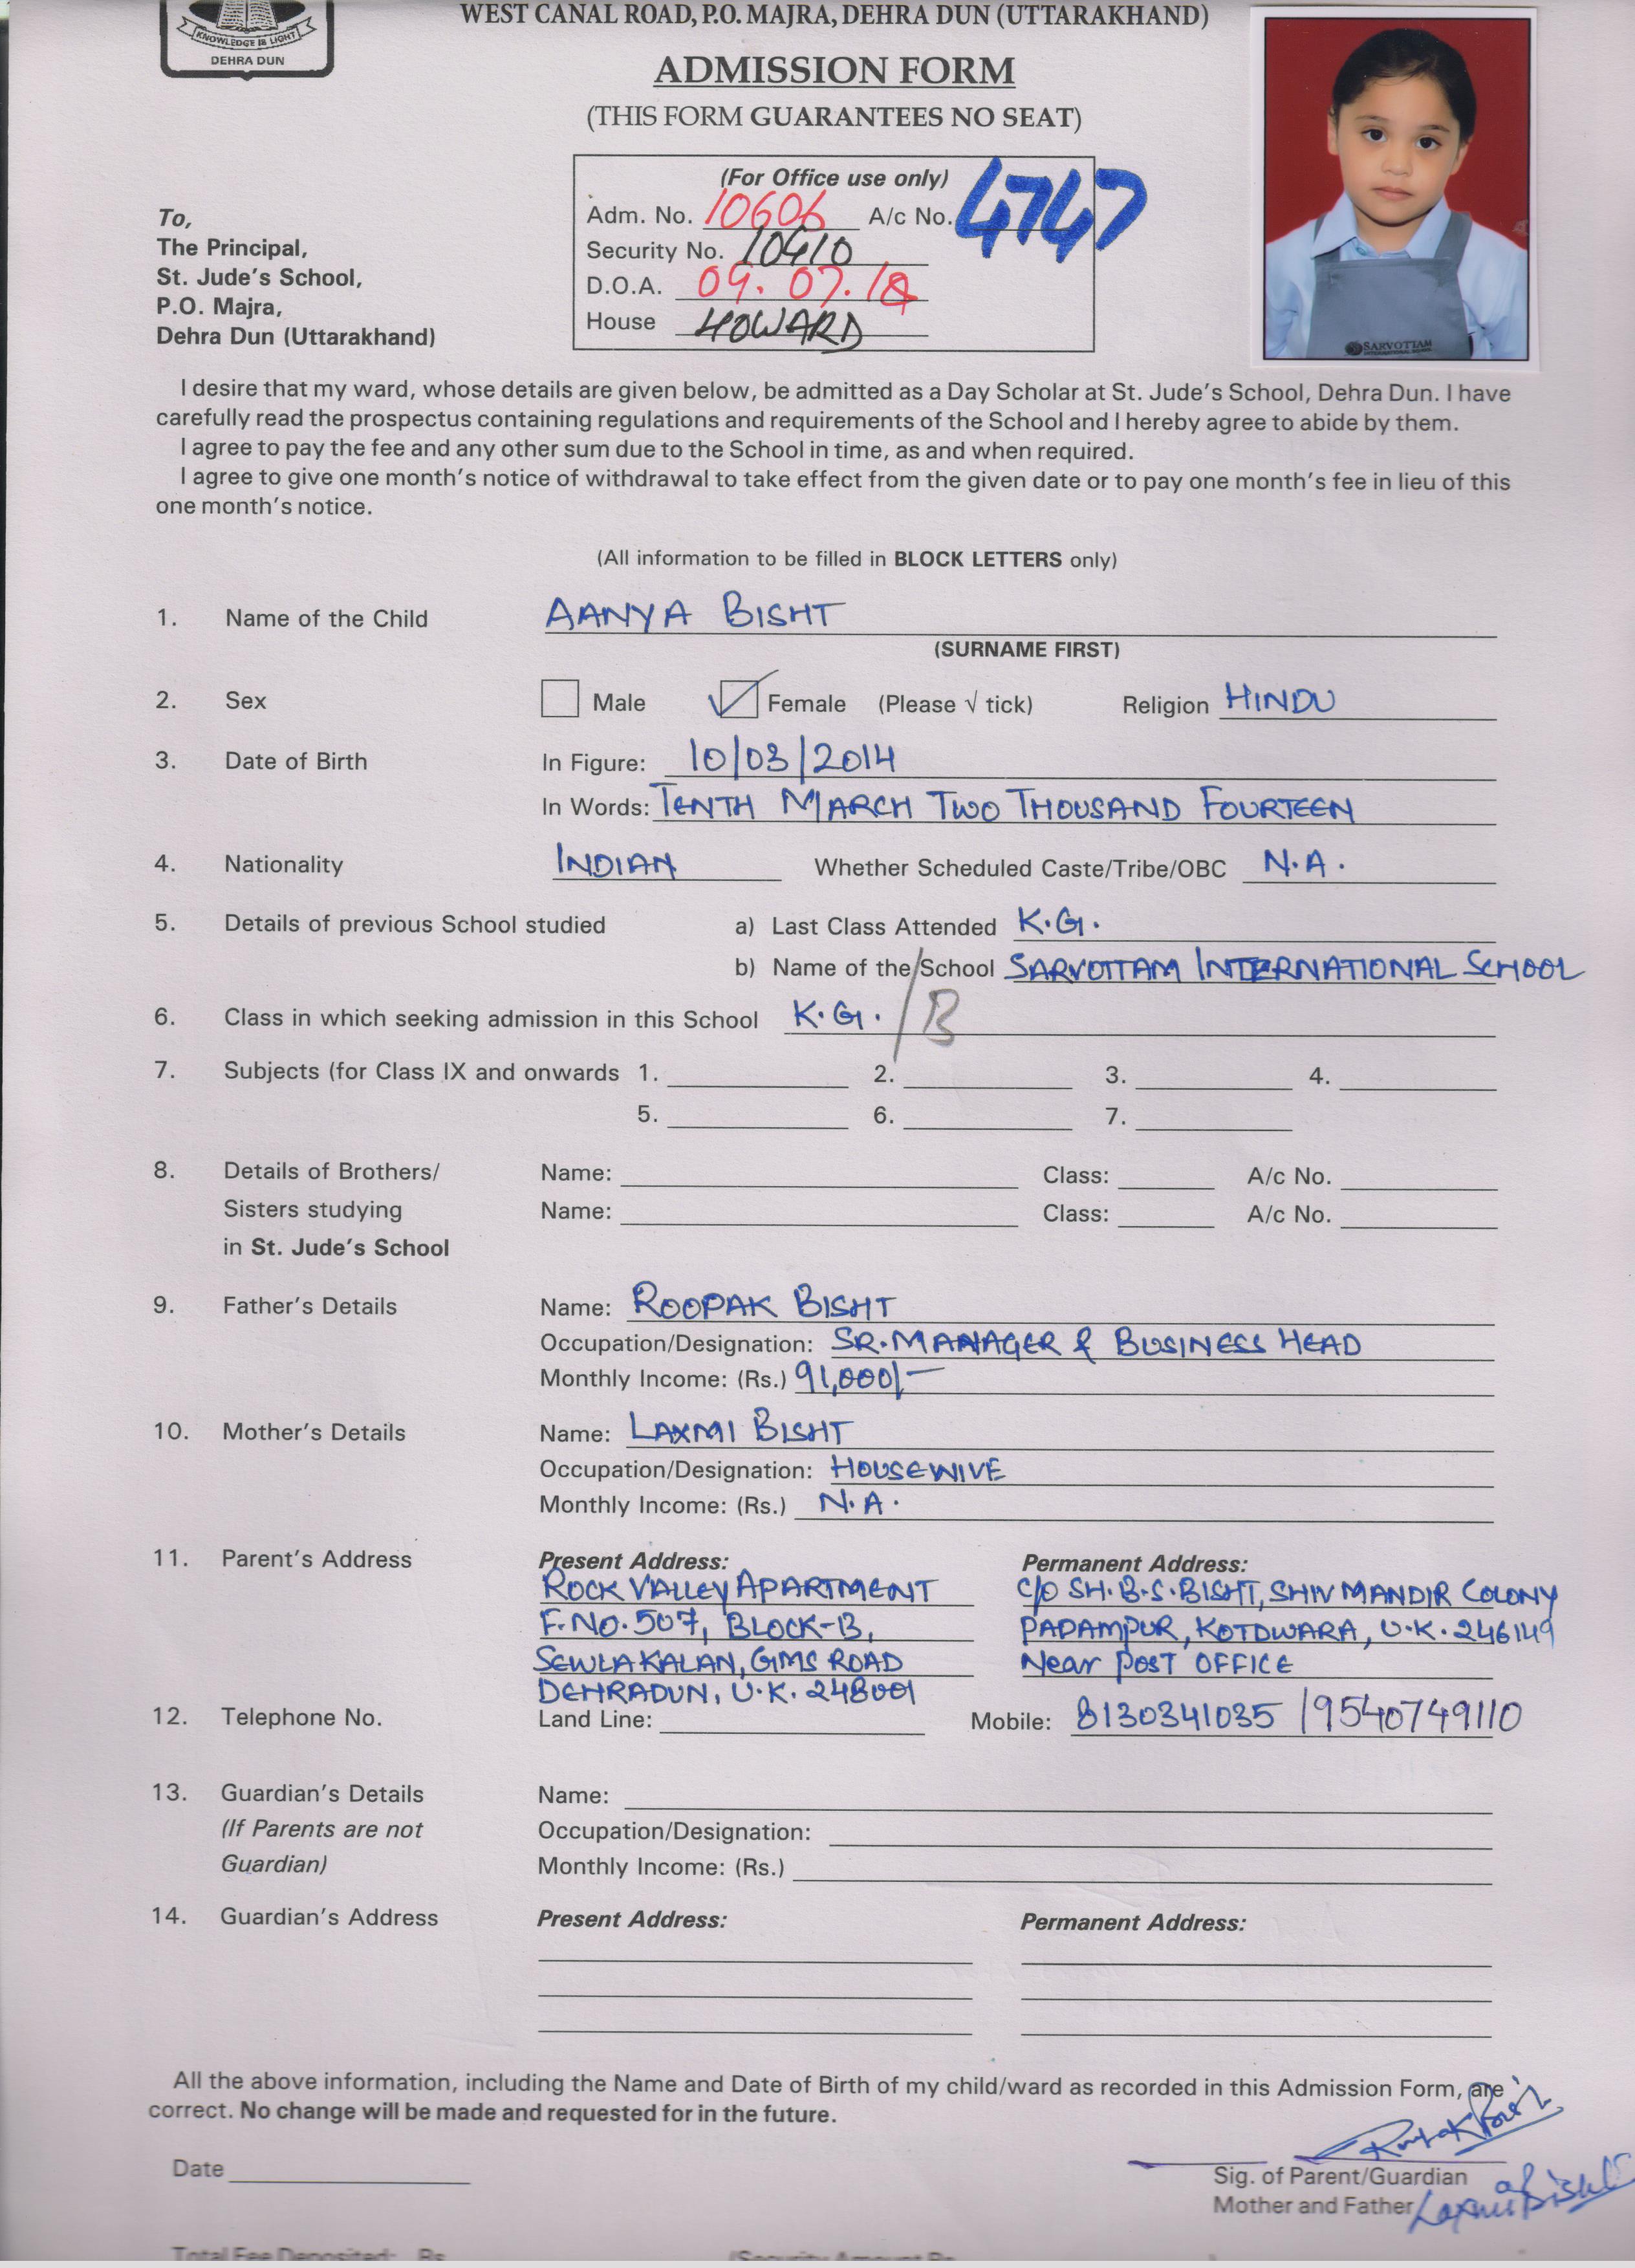 KNOWLEDGE IS LIGHT
DEHRA DUN
WEST CANAL ROAD, P.O. MAJRA, DEHRA DUN (UTTARAKHAND)
ADMISSION FORM
(THIS FORM GUARANTEES NO SEAT)
(For Office use only)
Adm. No. 10606 A/c No. 4747
Security No. 10410
D.O.A. 09.07.18
House HOWARD
SARVOTTAM
To,
The Principal,
St. Jude's School,
P.O. Majra,
Dehra Dun (Uttarakhand)
I desire that my ward, whose details are given below, be admitted as a Day Scholar at St. Jude's School, Dehra Dun. I have
carefully read the prospectus containing regulations and requirements of the School and I hereby agree to abide by them.
I agree to pay the fee and any other sum due to the School in time, as and when required.
I agree to give one month's notice of withdrawal to take effect from the given date or to pay one month's fee in lieu of this
one month's notice.
(All information to be filled in BLOCK LETTERS only)
1. Name of the Child AANYA BISHT
(SURNAME FIRST)
2. Sex Male Female (Please √ tick) Religion HINDU
3. Date of Birth In Figure: 10/03/2014
In Words: TENTH MARCH TWO THOUSAND FOURTEEN
4. Nationality INDIAN Whether Scheduled Caste/Tribe/OBC N.A.
5. Details of previous School studied a) Last Class Attended K.G.
b) Name of the School SARVOTTAM INTERNATIONAL SCHOOL
6. Class in which seeking admission in this School K.G. / B
7. Subjects (for Class IX and onwards 1. 2. 3. 4.
5. 6. 7.
8. Details of Brothers/ Name: Class: A/c No.
Sisters studying Name: Class: A/c No.
in St. Jude's School
9. Father's Details Name: ROOPAK BISHT
Occupation/Designation: SR.MANAGER & BUSINESS HEAD
Monthly Income: (Rs.) 91,000/-
10. Mother's Details Name: LAXMI BISHT
Occupation/Designation: HOUSEWIVE
Monthly Income: (Rs.) N.A.
11. Parent's Address Present Address: Permanent Address:
ROCK VALLEY APARTMENT C/O SH.B.S.BISHT, SHIV MANDIR COLONY
F.NO.507, BLOCK-B, PADAMPUR, KOTDWARA, U.K. 246149
SEWLAKALAN, GMS ROAD Near POST OFFICE
DEHRADUN, U.K. 248001
12. Telephone No. Land Line: Mobile: 8130341035 /9540749110
13. Guardian's Details Name:
(If Parents are not Occupation/Designation:
Guardian) Monthly Income: (Rs.)
14. Guardian's Address Present Address: Permanent Address:
All the above information, including the Name and Date of Birth of my child/ward as recorded in this Admission Form, are
correct. No change will be made and requested for in the future.
Date
Sig. of Parent/Guardian
Mother and Father Laxmi Bisht
Total Fee Deposited: Rs.